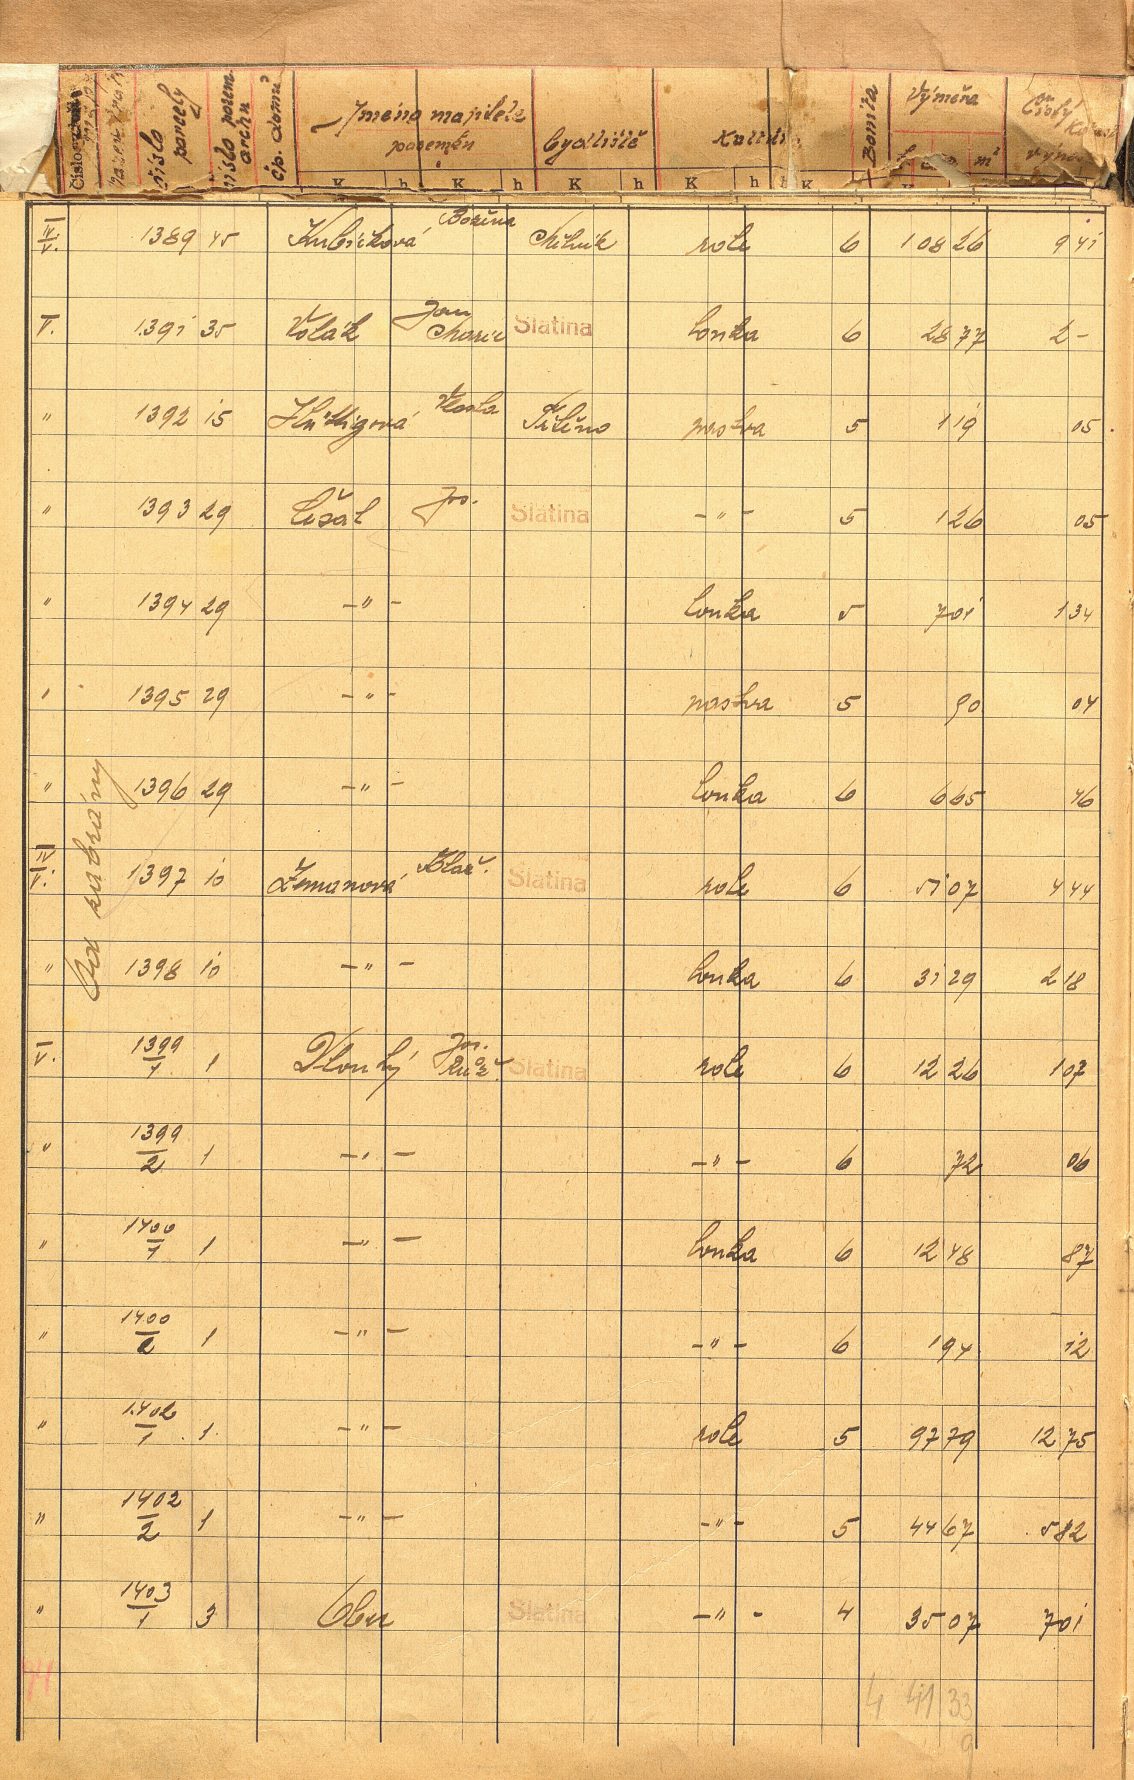 číslo parcely
číslo pozem. archu
čp. domů
Jméno majitele pozemku
Bydliště
Bonita
Výměra
Čistý
K h K h K h K h K
IV/V. 1389 45 Kubíčková Božena Mělník role 6 1 08 26 9 41
V. 1391 35 Volák Jan Marie Slatina louka 6 28 77 2 -
" 1392 15 Vlasta pastva 5 1 19 05
" 1393 29 Jos. Slatina -"- 5 1 26 05
" 1394 29 -"- louka 5 7 01 1 34
" 1395 29 -"- pastva 5 90 04
" 1396 29 -"- louka 6 6 65 46
Od zabrány
IV/V. 1397 10 Zemanová Slatina role 6 51 07 4 44
" 1398 10 -"- louka 6 31 29 2 18
V. 1399/1 1 Dlouhý Jos. Růž. Slatina role 6 12 26 1 07
" 1399/2 1 -"- -"- 6 72 06
" 1400/1 1 -"- louka 6 12 48 87
" 1400/2 1 -"- -"- 6 1 94 12
" 1402/1 1 -"- role 5 97 79 12 75
" 1402/2 1 -"- -"- 5 44 67 5 82
" 1403/1 3 Obec Slatina -"- 4 35 07 7 01
4 41 33
9